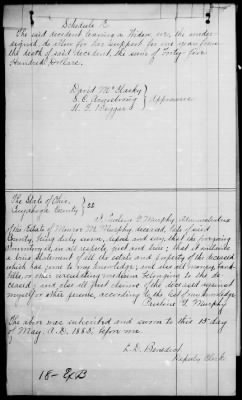 Schedule E
The said decedent leaving a Widow, we, the under-
signed, do allow for her support for one year from
the death of said decedent, the sum of Forty-five
Hundred Dollars.
David McClasky }
S. C. Armstrong } Appraisers
H. G. Bigger }
The State of Ohio, }
Cuyahoga County } SS
I, Pauline G. Murphy, Administratrix
of the Estate of Monroe M. Murphy, deceased, late of said
County, being duly sworn, depose and say, that the foregoing
Inventory is, in all respects, just and true; that it contains
a true statement of all the estate and property of the deceased
which has come to my knowledge; and also all money, bank-
bills, or other circulating medium belonging to the de-
ceased; and also all just claims of the deceased against
myself or other persons, according to the best of my knowledge
Pauline G. Murphy
The above was subscribed and sworn to this 15 day
of May A.D. 1885, before me
L. D. Benedict
Deputy Clerk
18- Ex B